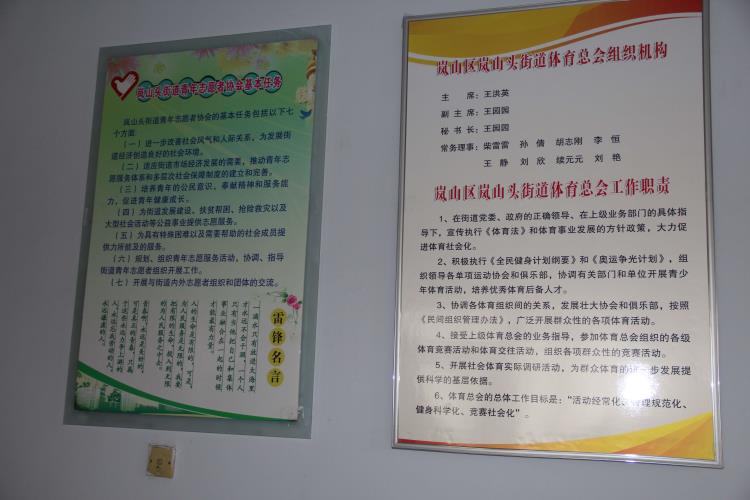 岚山头街道青年志愿者协会基本任务
岚山头街道青年志愿者协会的基本任务包括以下七
个方面:
(一)进一步改善社会风气和人际关系,为发展街
道经济创造良好的社会环境。
(二)适应街道市场经济发展的需要,推动青年志
愿服务体系和多层次社会保障制度的建立和完善。
(三)培养青年的公民意识、奉献精神和服务能
力,促进青年健康成长。
(四)为街道发展建设、扶贫帮困、抢险救灾以及
大型社会活动等公益事业提供志愿服务。
(五)为具有特殊困难以及需要帮助的社会成员提
供力所能及的服务。
(六)规划、组织青年志愿服务活动,协调、指导
街道青年志愿者组织开展工作。
(七)开展与街道内外志愿者组织和团体的交流。
雷锋名言
一滴水只有放进大海里
才永远不会干涸,一个人
只有当他把自己和集体
事业融合在一起的时候
才能最有力量。
人的生命是有限的,可是,
为人民服务是无限的,我要
把有限的生命,投入到无限
的为人民服务之中去。
青春啊,永远是美好的,
可是真正的青春,只属
于这些永远力争上游的
人,永远忘我劳动的人,
永远谦虚的人。
岚山区岚山头街道体育总会组织机构
主 席:王洪英
副主席:王园园
秘书长:王园园
常务理事:柴雷雷 孙倩 胡志刚 李恒
王静 刘欣 续元元 刘艳
岚山区岚山头街道体育总会工作职责
1、在街道党委、政府的正确领导、在上级业务部门的具体指
导下,宣传执行《体育法》和体育事业发展的方针政策,大力促
进体育社会化。
2、积极执行《全民健身计划纲要》和《奥运争光计划》,组
织领导各单项运动协会和俱乐部,协调有关部门和单位开展青少
年体育活动,培养优秀体育后备人才。
3、协调各体育组织间的关系,发展壮大协会和俱乐部,按照
《民间组织管理办法》,广泛开展群众性的各项体育活动。
4、接受上级体育总会的业务指导,参加体育总会组织的各级
体育竞赛活动和体育交往活动,组织各项群众性的竞赛活动。
5、开展社会体育实际调研活动,为群众体育的进一步发展提
供科学的基层依据。
6、体育总会的总体工作目标是:“活动经常化、管理规范化、
健身科学化、竞赛社会化”。